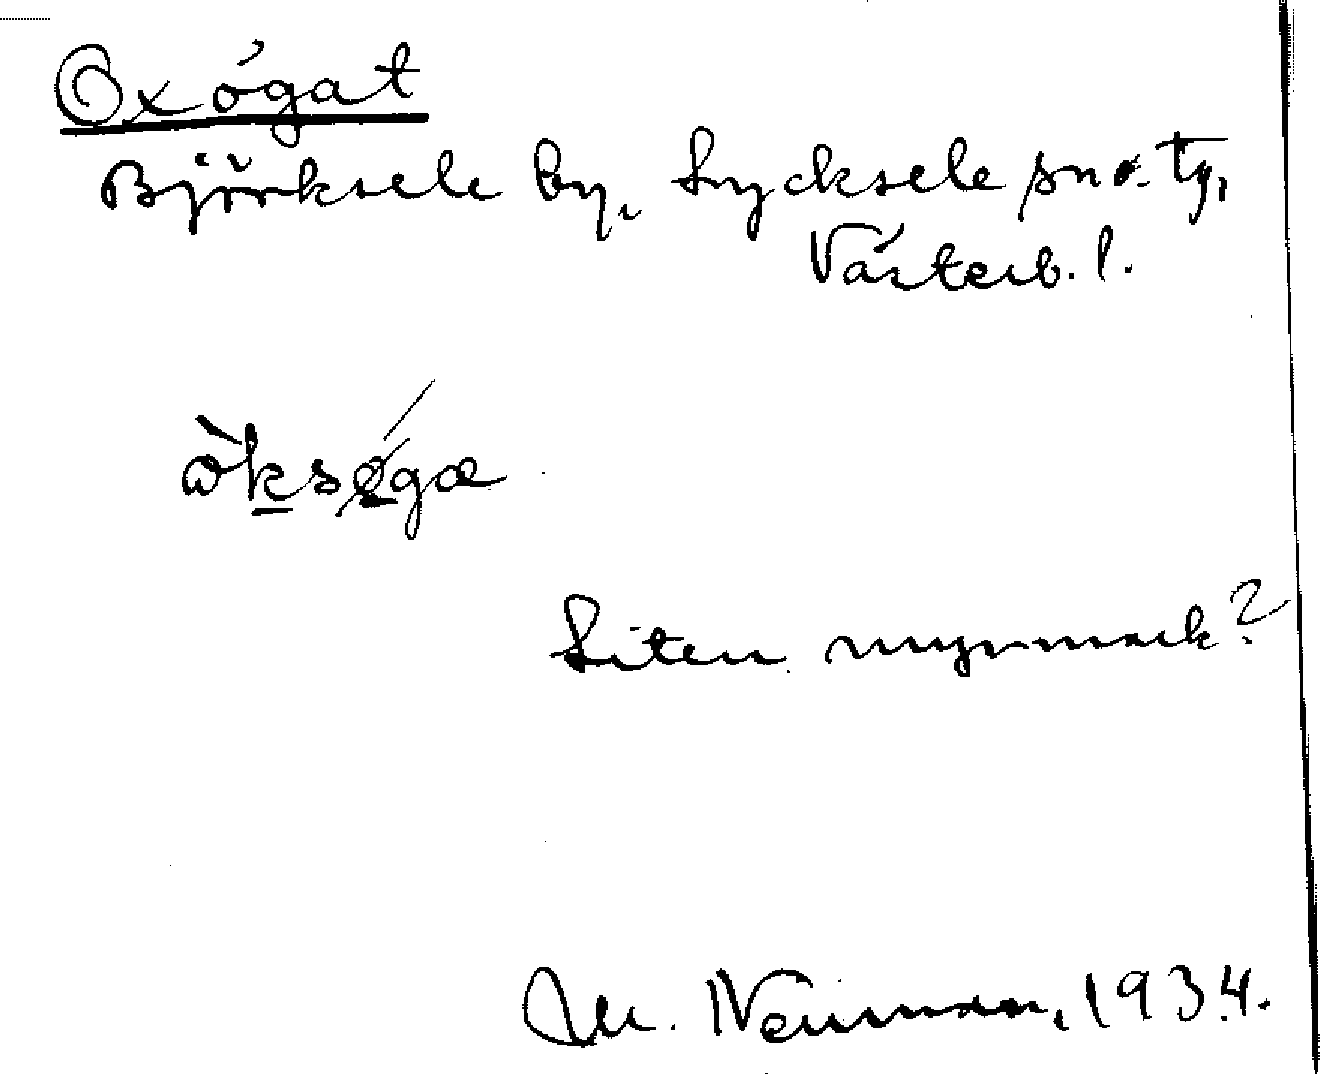 Oxögat
Björksele by, Lycksele sn o. tg,
Västerb. l.
ò̀ksøgɑ
Liten myrmark?
M. Neiman, 1934.